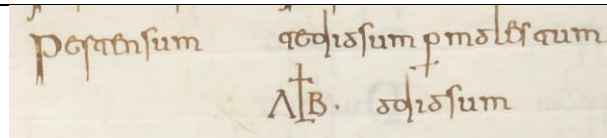 pestensum tediosum ꝑ molestum
ALB. odiosum